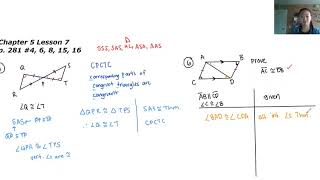 Chapter 5 Lesson 7
p. 281 #4, 6, 8, 15, 16
SSS, SAS, HL, ASA, AAS
Q
P
T
R
S
CPCTC
corresponding parts of
congruent triangles are
congruent
∠Q ≅ ∠T
SAS
∠QPR ≅ ∠TPS
vert. ∠s are ≅
△QPR ≅ △TPS
SAS ≅ Thm.
∴ ∠Q ≅ ∠T
CPCTC
A
B
C
D
prove
AC ≅ DB
AB ∥ CD
∠C ≅ ∠B
given
∠BAD ≅ ∠CDA
alt. int. ∠s Thm.